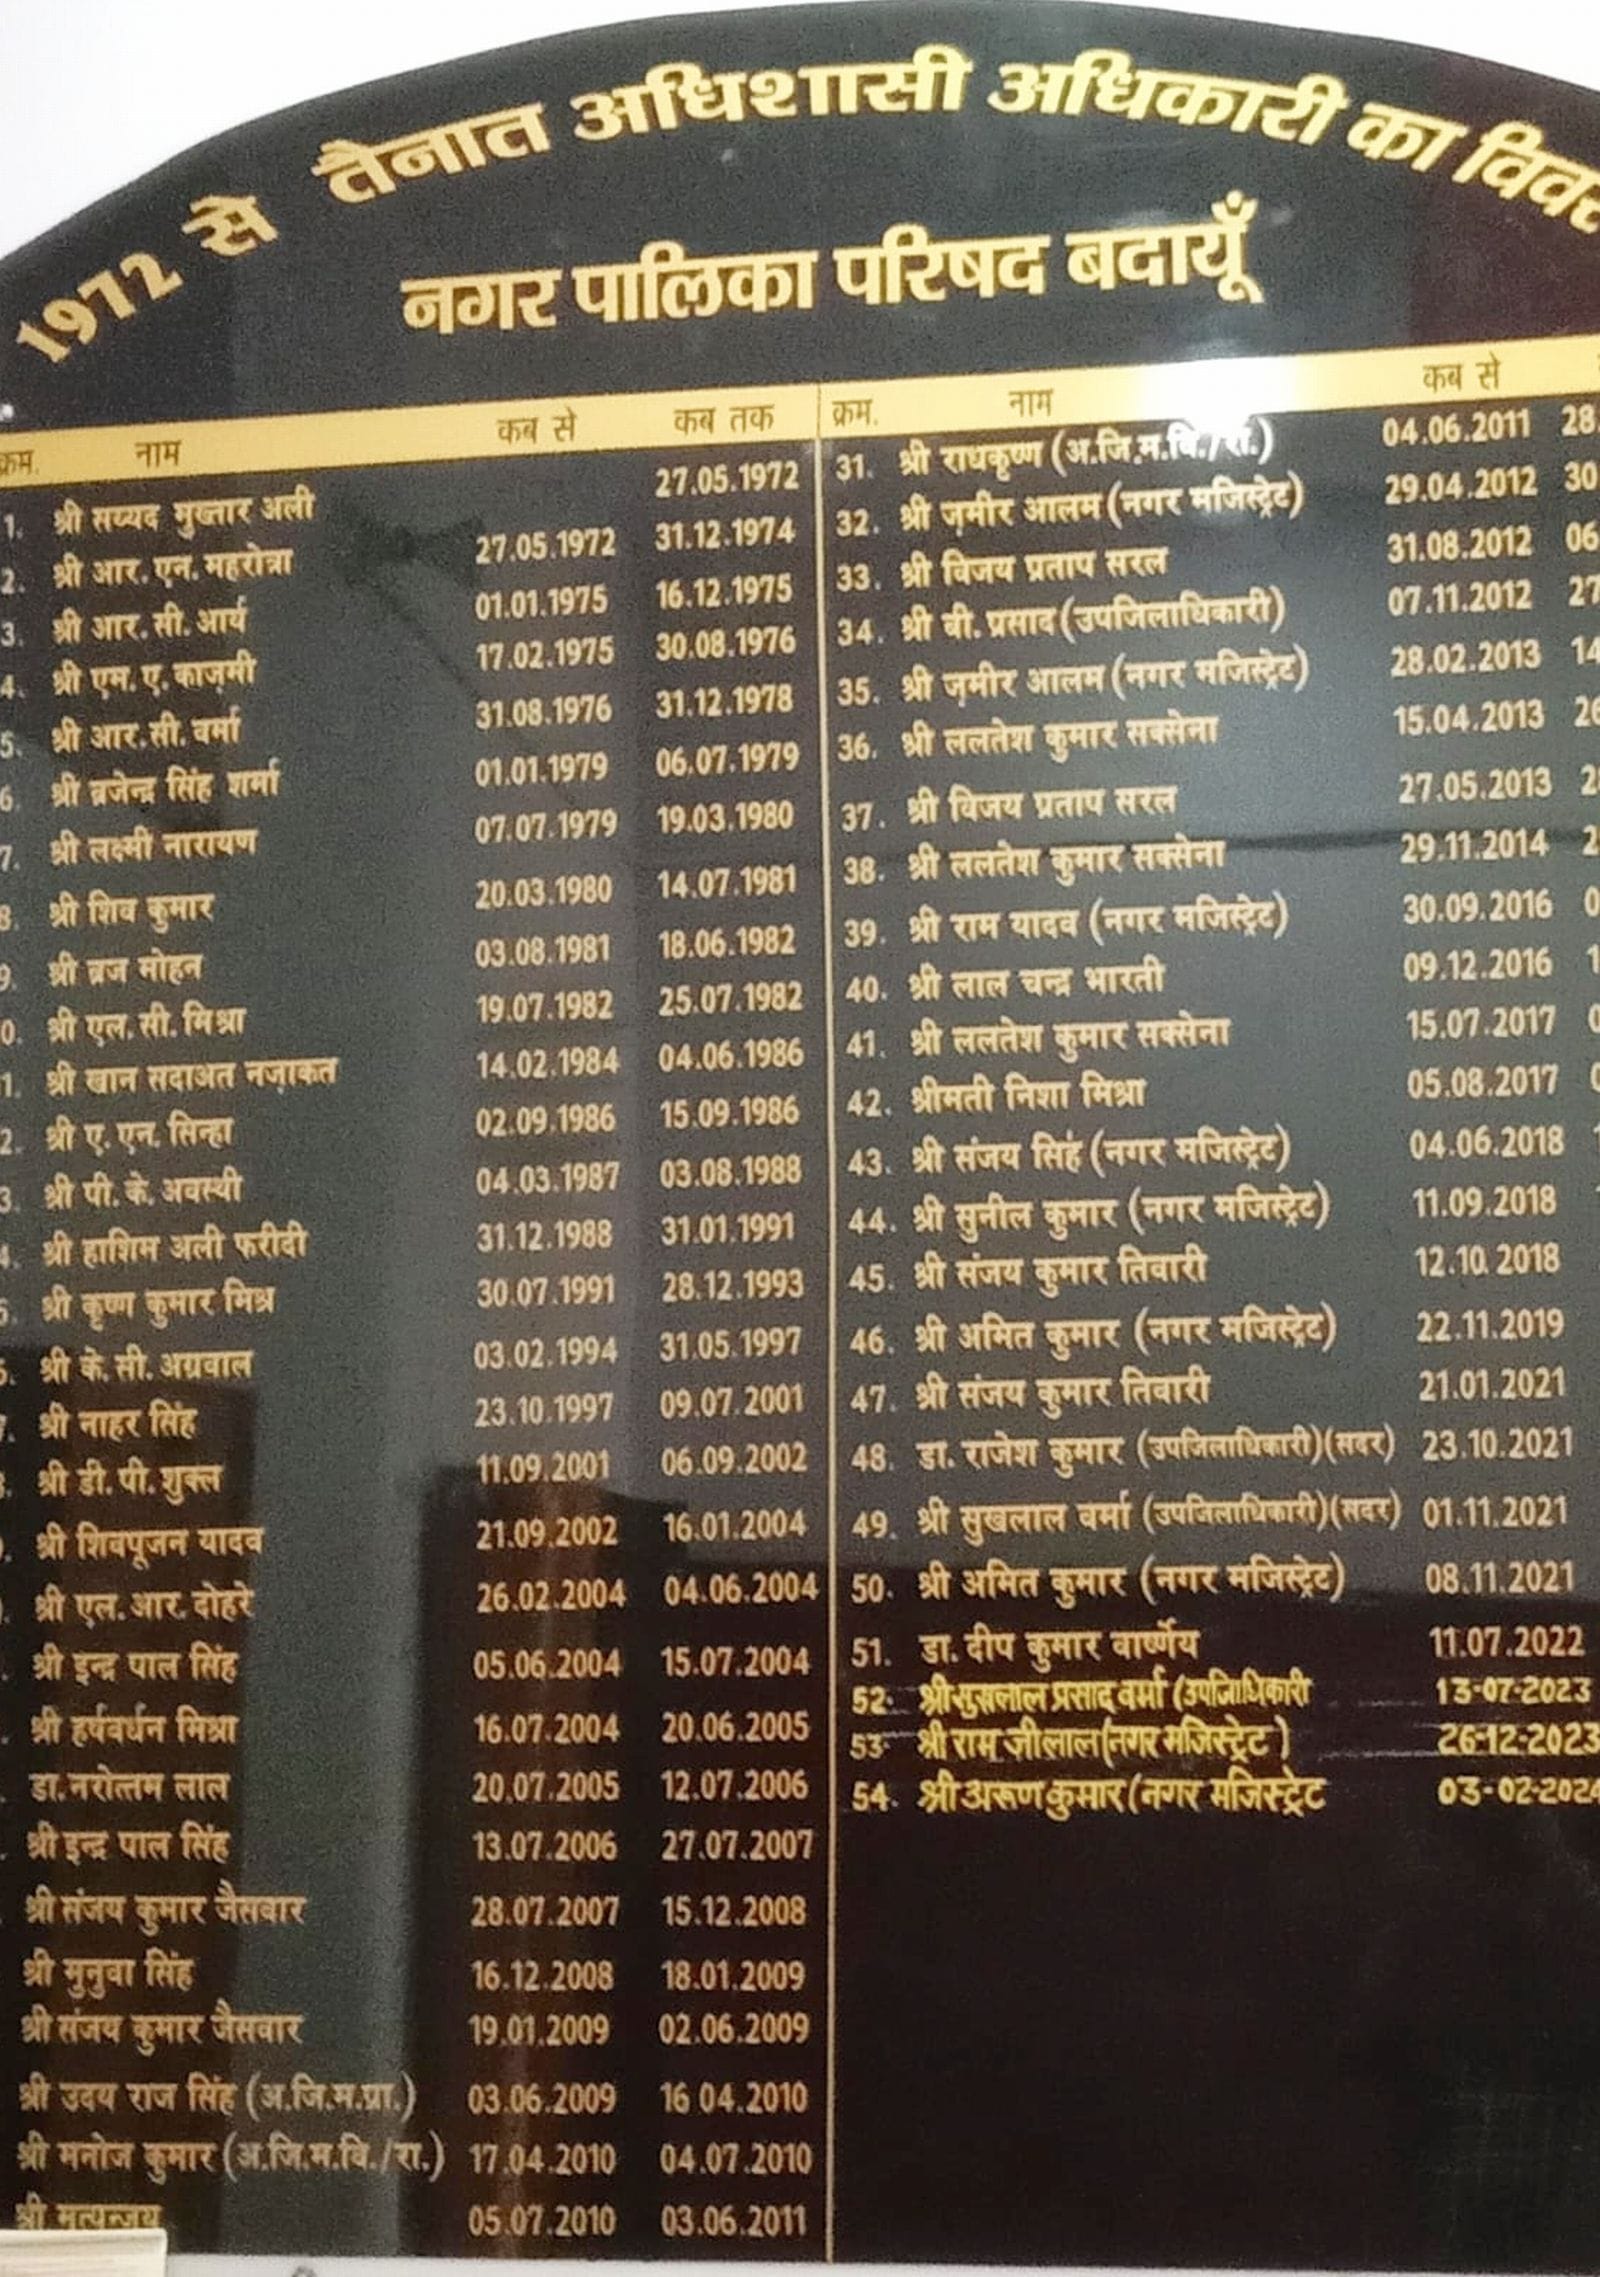 1972 से तैनात अधिशासी अधिकारी का विवर
नगर पालिका परिषद बदायूँ
क्रम. नाम कब से कब तक
1. श्री सय्यद मुख्तार अली 27.05.1972
2. श्री आर. एन. महरोत्रा 27.05.1972 31.12.1974
3. श्री आर. सी. आर्य 01.01.1975 16.12.1975
4. श्री एम. ए. काज़मी 17.02.1975 30.08.1976
5. श्री आर.सी. वर्मा 31.08.1976 31.12.1978
6. श्री ब्रजेन्द्र सिंह शर्मा 01.01.1979 06.07.1979
7. श्री लक्ष्मी नारायण 07.07.1979 19.03.1980
8. श्री शिव कुमार 20.03.1980 14.07.1981
9. श्री ब्रज मोहन 03.08.1981 18.06.1982
0. श्री एल. सी. मिश्रा 19.07.1982 25.07.1982
1. श्री खान सदाअत नज़ाकत 14.02.1984 04.06.1986
2. श्री ए. एन. सिन्हा 02.09.1986 15.09.1986
3. श्री पी. के. अवस्थी 04.03.1987 03.08.1988
4. श्री हाशिम अली फरीदी 31.12.1988 31.01.1991
5. श्री कृष्ण कुमार मिश्र 30.07.1991 28.12.1993
6. श्री के. सी. अग्रवाल 03.02.1994 31.05.1997
7. श्री नाहर सिंह 23.10.1997 09.07.2001
8. श्री डी. पी. शुक्ल 11.09.2001 06.09.2002
श्री शिवपूजन यादव 21.09.2002 16.01.2004
श्री एल. आर. दोहरे 26.02.2004 04.06.2004
श्री इन्द्र पाल सिंह 05.06.2004 15.07.2004
श्री हर्षवर्धन मिश्रा 16.07.2004 20.06.2005
डा. नरोत्तम लाल 20.07.2005 12.07.2006
श्री इन्द्र पाल सिंह 13.07.2006 27.07.2007
श्री संजय कुमार जैसवार 28.07.2007 15.12.2008
श्री मुनुवा सिंह 16.12.2008 18.01.2009
श्री संजय कुमार जैसवार 19.01.2009 02.06.2009
श्री उदय राज सिंह (अ.जि.म.प्रा.) 03.06.2009 16 04.2010
श्री मनोज कुमार (अ.जि.म.वि./रा.) 17.04.2010 04.07.2010
श्री 05.07.2010 03.06.2011
क्रम. नाम कब से
31. श्री राधकृष्ण (अ.जि.म.वि./रा.) 04.06.2011 28.
32. श्री ज़मीर आलम (नगर मजिस्ट्रेट) 29.04.2012 30
33. श्री विजय प्रताप सरल 31.08.2012 06
34. श्री बी. प्रसाद (उपजिलाधिकारी) 07.11.2012 27
35. श्री ज़मीर आलम (नगर मजिस्ट्रेट) 28.02.2013 14
36. श्री ललतेश कुमार सक्सेना 15.04.2013 26
37. श्री विजय प्रताप सरल 27.05.2013 2
38. श्री ललतेश कुमार सक्सेना 29.11.2014 2
39. श्री राम यादव (नगर मजिस्ट्रेट) 30.09.2016 0
40. श्री लाल चन्द्र भारती 09.12.2016 1
41. श्री ललतेश कुमार सक्सेना 15.07.2017 0
42. श्रीमती निशा मिश्रा 05.08.2017 0
43. श्री संजय सिहं (नगर मजिस्ट्रेट) 04.06.2018
44. श्री सुनील कुमार (नगर मजिस्ट्रेट) 11.09.2018
45. श्री संजय कुमार तिवारी 12.10.2018
46. श्री अमित कुमार (नगर मजिस्ट्रेट) 22.11.2019
47. श्री संजय कुमार तिवारी 21.01.2021
48. डा. राजेश कुमार (उपजिलाधिकारी)(सदर) 23.10.2021
49. श्री सुखलाल वर्मा (उपजिलाधिकारी)(सदर) 01.11.2021
50. श्री अमित कुमार (नगर मजिस्ट्रेट) 08.11.2021
51. डा. दीप कुमार वार्ष्णेय 11.07.2022
52. श्री सुखलाल प्रसाद वर्मा (उपजिाधिकारी 13-07-2023
53. श्री राम जीलाल (नगर मजिस्ट्रेट) 26-12-2023
54. श्री अरूण कुमार (नगर मजिस्ट्रेट 03-02-2024